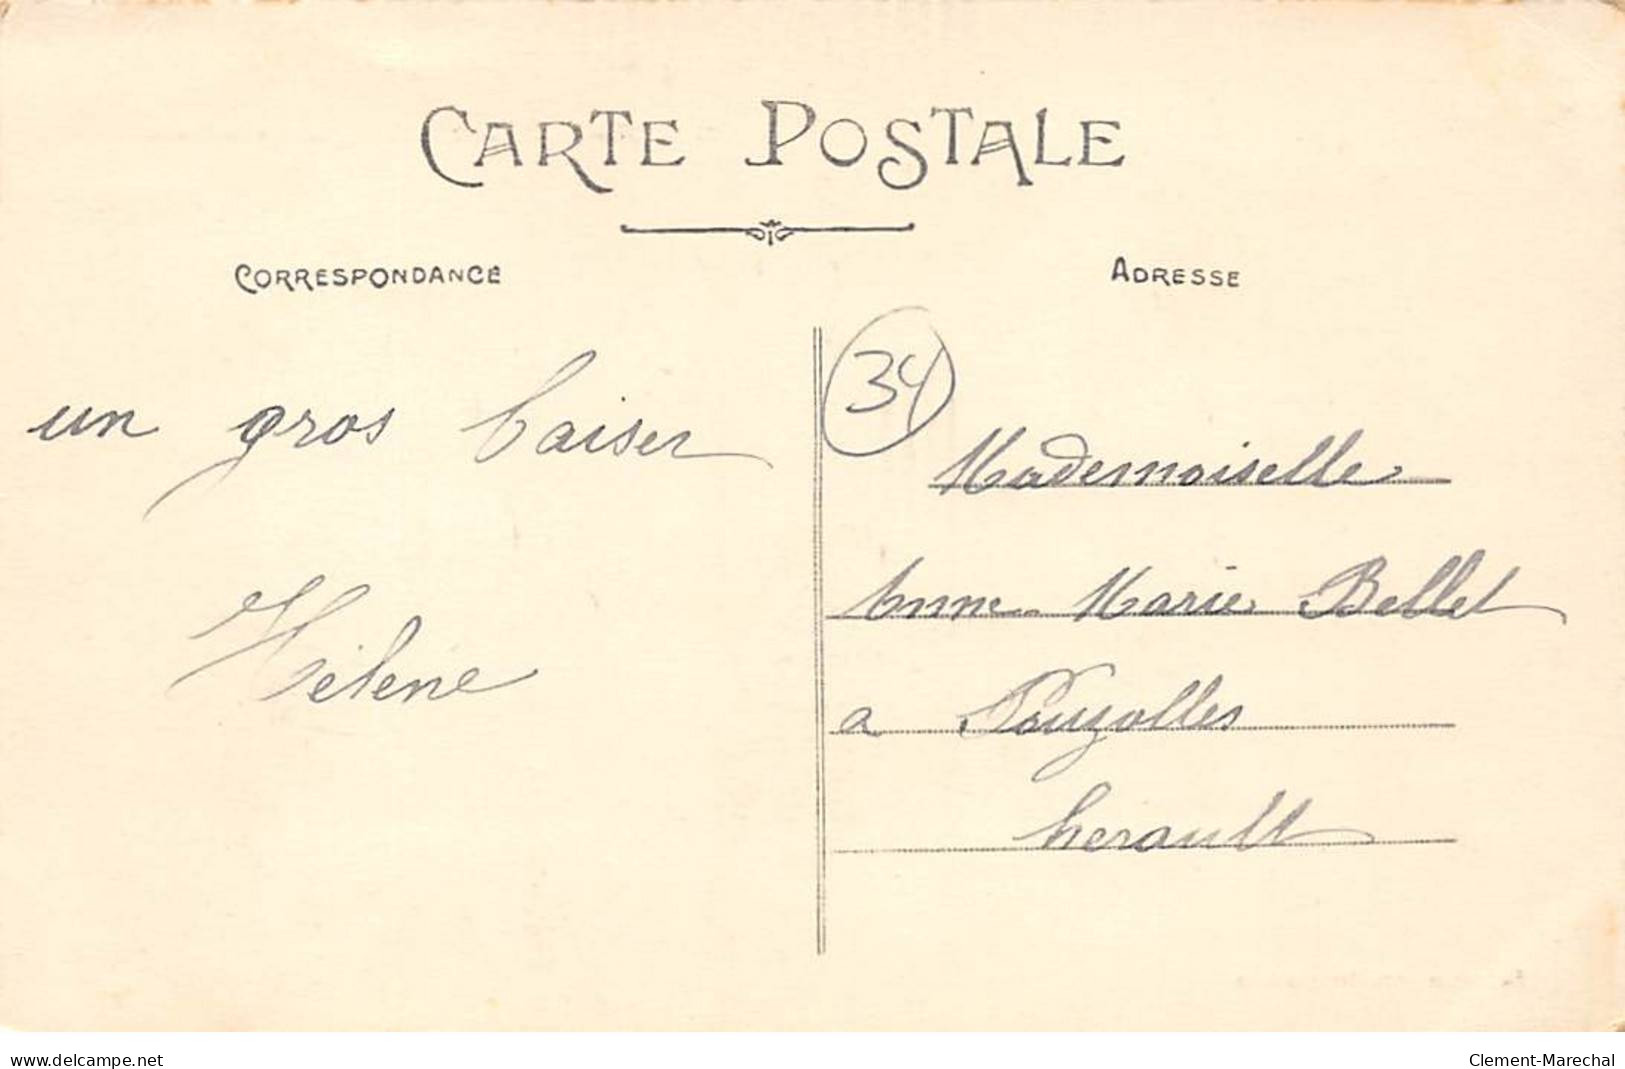 CARTE POSTALE
CORRESPONDANCE
ADRESSE
34
un gros baiser
Hélène
Mademoiselle
Anne Marie Bellet
a Pouzolles
herault
www.delcampe.net
Clement-Marechal